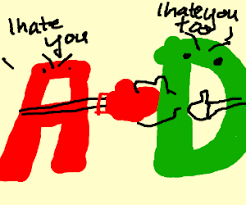 I hate
you
I hate you
too
A D